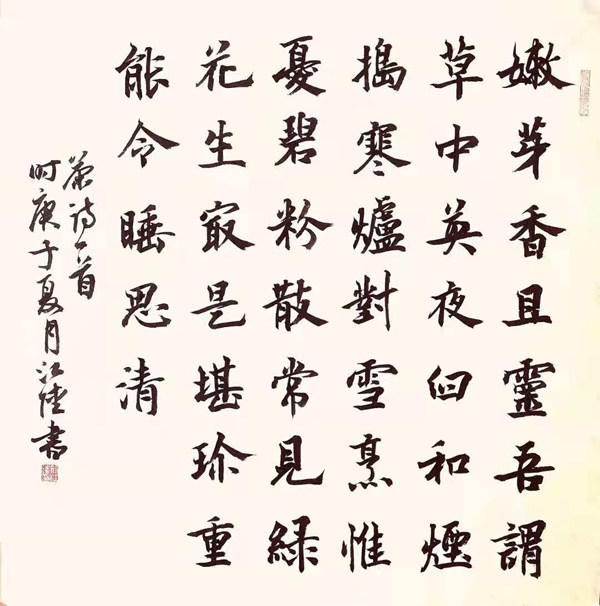 嫩芽香且靈吾謂
草中英夜臼和煙
搗寒爐對雪烹惟
憂碧粉散常見綠
花生㝡是堪珎重
能令睡思清
茶詩一首
时庚子夏月江陸書